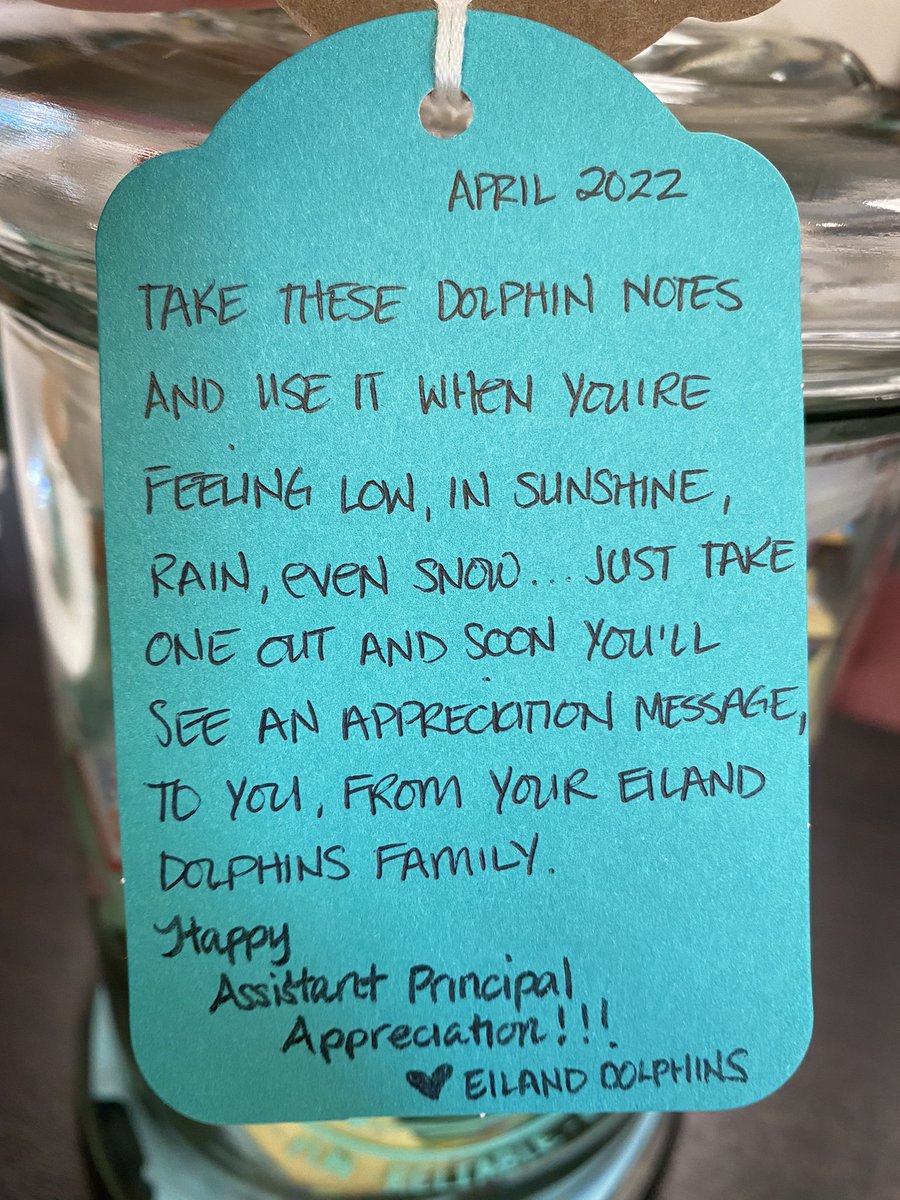 APRIL 2022
TAKE THESE DOLPHIN NOTES
AND USE IT WHEN YOU'RE
FEELING LOW, IN SUNSHINE,
RAIN, EVEN SNOW... JUST TAKE
ONE OUT AND SOON YOU'LL
SEE AN APPRECIATION MESSAGE,
TO YOU, FROM YOUR EILAND
DOLPHINS FAMILY.
Happy
Assistant Principal
Appreciation!!!
♥ EILAND DOLPHINS